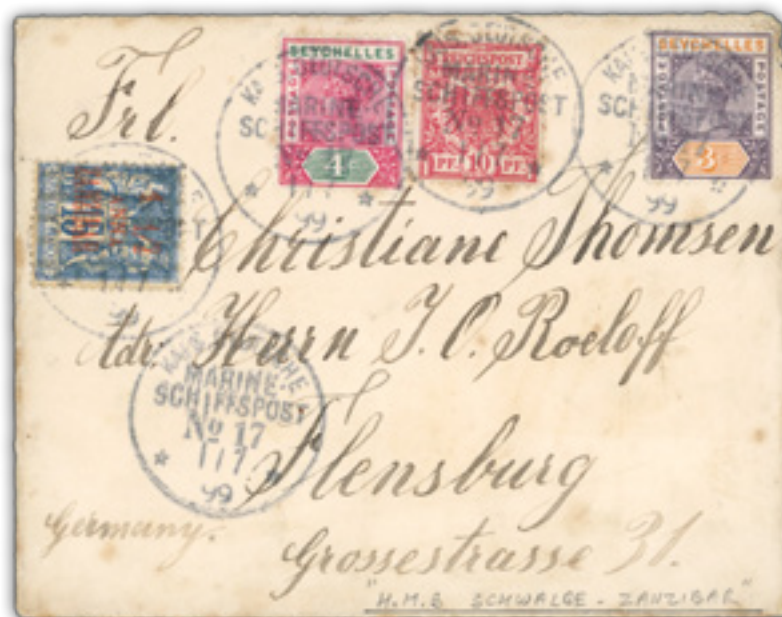 Frl.
SEYCHELLES
POSTAGE POSTAGE
4c
REICHSPOST
PF 10 PF
SEYCHELLES
POSTAGE POSTAGE
3c
KAIS. DEUTSCHE
MARINE-
SCHIFFSPOST
No 17
99
KAIS. DEUTSCHE
MARINE-
SCHIFFSPOST
No 17
99
99
Christiane Thomsen
Adr. Herrn J. C. Roeloff
KAIS. DEUTSCHE
MARINE-
SCHIFFSPOST
No 17
99
Flensburg
Germany.
Grossestrasse 31.
"H.M.S SCHWALBE - ZANZIBAR"